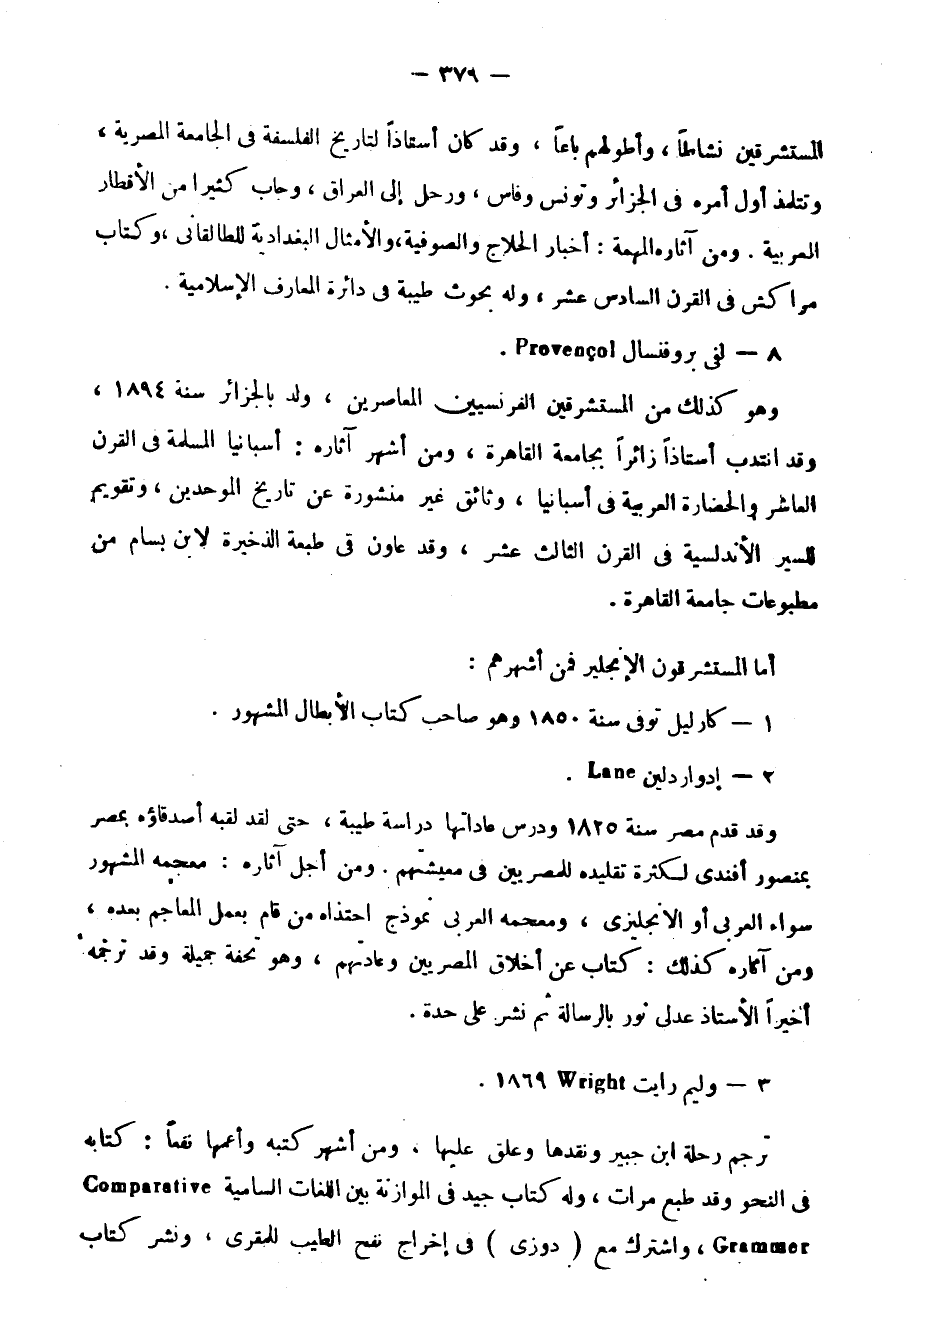 — ٣٧٩ —
المستشرقين نشاطاً ، وأطولهم باعاً ، وقد كان أستاذاً لتاريخ الفلسفة فى الجامعة المصرية ،
وتتلمذ أول أمره فى الجزائر وتونس وفاس ، ورحل إلى العراق ، وجاب كثيرا من الأقطار
العربية . ومن آثاره المهمة : أخبار الحلاج والصوفية ، والأمثال البغدادية للطالقانى ، وكتاب
مراكش فى القرن السادس عشر ، وله بحوث طيبة فى دائرة المعارف الإسلامية .
٨ — لفى بروفنسال Provençol .
وهو كذلك من المستشرقين الفرنسيين المعاصرين ، ولد بالجزائر سنة ١٨٩٤ ،
وقد انتدب أستاذاً زائراً بجامعة القاهرة ، ومن أشهر آثاره : أسبانيا المسلمة فى القرن
العاشر والحضارة العربية فى أسبانيا ، وثائق غير منشورة عن تاريخ الموحدين ، وتقويم
للسير الأندلسية فى القرن الثالث عشر ، وقد عاون فى طبعة الذخيرة لابن بسام من
مطبوعات جامعة القاهرة .
أما المستشرقون الإنجلير فمن أشهرهم :
١ — كارليل توفى سنة ١٨٥٠ وهو صاحب كتاب الأبطال المشهور .
٢ — إدوارد لين Lane .
وقد قدم مصر سنة ١٨٢٥ ودرس عاداتها دراسة طيبة ، حتى لقد لقبه أصدقاؤه بمصر
بمنصور أفندى لكثرة تقليده للمصريين فى معيشتهم . ومن أجل آثاره : معجمه المشهور
سواء العربى أو الانجليزى ، ومعجمه العربى نموذج احتذاه من قام بعمل المعاجم بعده ،
ومن آثاره كذلك : كتاب عن أخلاق المصريين وعادتهم ، وهو تحفة جميلة وقد ترجمه
أخيراً الأستاذ عدلى نور بالرسالة ثم نشر على حدة .
٣ — وليم رايت Wright ١٨٦٩ .
ترجم رحلة ابن جبير ونقدها وعلق عليها ، ومن أشهر كتبه وأعمها نفعاً : كتابه
فى النحو وقد طبع مرات ، وله كتاب جيد فى الموازنة بين اللغات السامية Comparative
Grammer ، واشترك مع ( دوزى ) فى إخراج نفح الطيب للمقرى ، ونشر كتاب